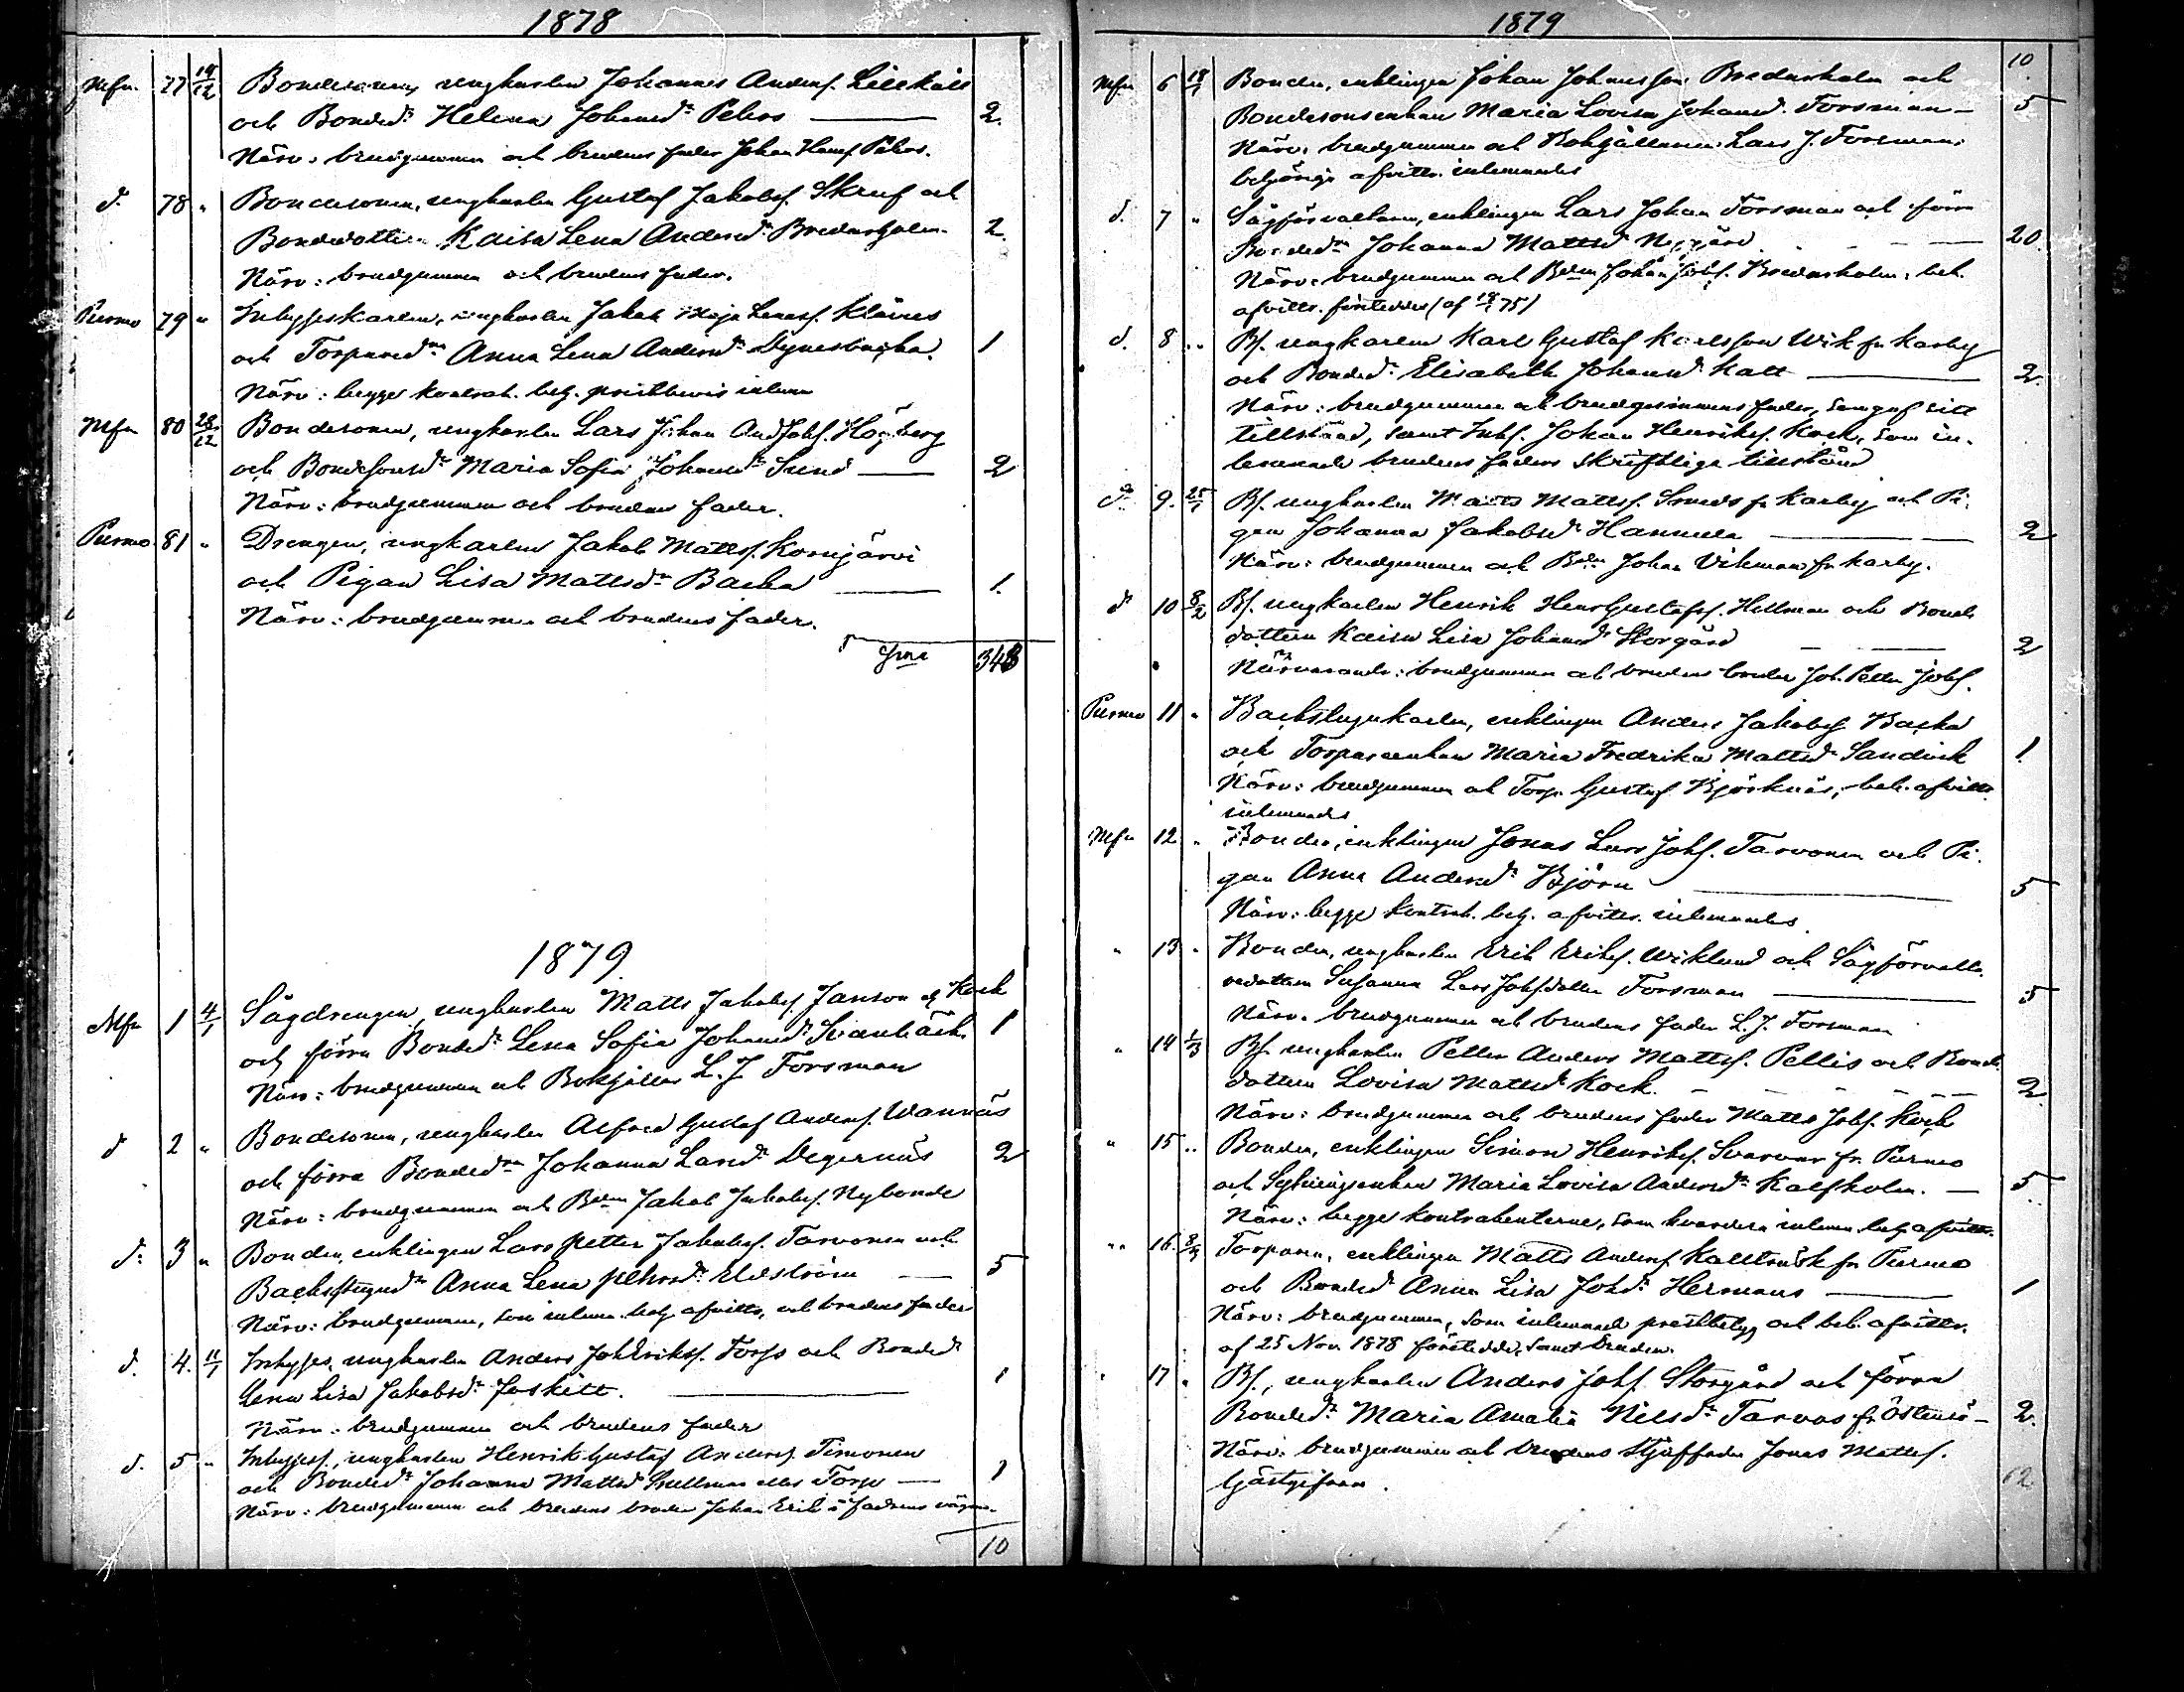 1878
Mfn. 77 14/12 Bondesonen, ungkarlen Johannes Andersf. Lillkäls
och Bonded:r Helena Johansd:r Pehrs — 2.
Närv: brudgummen och brudens fader Johan Hansf. Pehrs.
d. 78 " Bondesonen, ungkarlen Gustaf Jakobsf. Skruf och
Bondedottern Kaisa Lena Andersd:r Bredarholm. 2.
Närv: brudgummen och brudens fader.
Purmo 79 " Inhysjeskarlen, ungkarlen Jakob Maja Lenasf. Klävus
och Torpared:rn Anna Lena Andersd:r Dynesbacka. 1
Närv: begge kontrah. betj. prestbevis inlemn
Mfn 80 28/12 Bondesonen, ungkarlen Lars Johan AndJohsf. Högberg
och Bondesonsd:r Maria Sofia Johansd:r Sund — 2
Närv: brudgummen och brudens fader.
Purmo 81 " Drengen, ungkarlen Jakob Mattsf. Korvjärvi
och Pigan Lisa Mattsd:r Backa — 1.
Närv: brudgummen och brudens fader.
S:ma 348
1879.
Mfn 1 4/1 Sågdrengen, ungkarlen Matts Jakobsf. Janson Kock
och förra Bonded:r Lena Sofia Johansd:r Svanbäck 1
Närv: brudgummen och Bokhållar L. J. Forsman
d 2 " Bondesonen, ungkarlen Alfred Gustaf Andersf. Wannäs
och förra Bonded:rn Johanna Larsd:r Degernäs 2
Närv: brudgummen och B:den Jakob Jakobsf. Nybonde
d: 3 " Bonden, enklingen Lars Petter Jakobsf. Tarvonen och
Backstugud:r Anna Lena Pehrsd:r Eldström — 5
Närv: brudgummen, som inlemn. behj. afvittr., och brudens fader
d. 4. 11/1 Inhysjes, ungkarlen Anders JohEriksf. Forss och Bonded:r
Lena Lisa Jakobsd:r Joskitt. — 1
Närv: brudgummen och brudens fader
d. 5 " Inhysjesf., ungkarlen Henrik Gustaf Andersf. Timonen
och Bonded:r Johanna Mattsd:r Snellman eller Torp — 1
Närv: brudgummen och brudens broder Johan Erik å fadrens vägnar.
10
1879
10
Mfn 6 18/1 Bonden, enklingen Johan Johansson Bredarholm och
Bondesonsenkan Maria Lovisa Johansd. Forsman — 5
Närv: brudgummen och Bokhållaren Lars J. Forsman.
behörige afvittr. inlemnades
d. 7 " Sågförvaltaren, enklingen Lars Johan Forsman och förra
Bonded:rn Johanna Mattsd:r Nygård — 20.
Närv: brudgummen och B:den Johan Johsf. Bredarholm, beh.
afvittr. företeddes (af 18/ 75)
d. 8 " Bf. ungkarlen Karl Gustaf Karlsson Wik fr. Karby
och Bonded:r Elisabeth Johansd. Katt — 2.
Närv: brudgummen och brudgummens fader, som gaf sitt
tillstånd, samt Inhs. Johan Henriksf. Kock, som in-
lemnade brudens faders skriftliga tillstånd
d:o 9. 25/1 Bf. ungkarlen Matts Mattsf. Smeds fr. Karby och Pi-
gan Johanna Jakobsd:r Hannula — 2
Närv: brudgummen och B:den Johan Vikman fr Karby.
d 10 8/2 Bf. ungkarlen Henrik HenrGustafsf. Hellman och Bonde
dottern Kaisa Lisa Johansd:r Storgård — 2
Närvarande: brudgummen och brudens broder Joh. Petter Johsf.
Purmo 11 " Backstugukarlen, enklingen Anders Jakobsf. Backa
och Torpareenkan Maria Fredrika Mattsd:r Sandvik 1.
Närv: brudgummen och Torp. Gustaf Björknäs, beh. afvittr.
inlemnades
Mfn 12. " Bonden, enklingen Jonas Lars Johsf. Tarvonen och Pi-
gan Anna Andersd:r Björn — 5
Närv: begge kontrah. behj. afvittr. inlemnades.
" 13 " Bonden, ungkarlen Erik Eriksf. Wiklund och Sågförvalta-
redottern Susanna Lars Johsdotter Forsman — 5
Närv. brudgummen och brudens fader L. J. Forsman
" 14 1/3 Bf. ungkarlen Petter Anders Mattsf. Pellis och Bonde
dottern Lovisa Mattsd:r Kock. — 2.
Närv: brudgummen och brudens fader Matts Johsf. Kock
" 15 .. Bonden, enklingen Simon Henriksf. Svarvar fr. Purmo
och Sytningsenkan Maria Lovisa Andersd:r Kalfholm. — 5.
Närv: begge kontrahenterne, som hvardera inlemn. behj afvittr.
" 16. 8/3 Torparen, enklingen Matts Andersf. Kallträsk fr Purmo
och Bonded:r Anna Lisa Johd:r Hermans — 1
Närv: brudgummen, som inlemnade prestbetyg och beh. afvittr.
af 25 Nov. 1878 företedde, samt bruden.
" 17 " Bf., ungkarlen Anders Johsf. Storgård och förra
Bonded:r Maria Amalia Nilsd:r Tarvas fr. Östensö — 2.
Närv: brudgummen och brudens styffader Jonas Mattsf.
Gästgifvar.
62